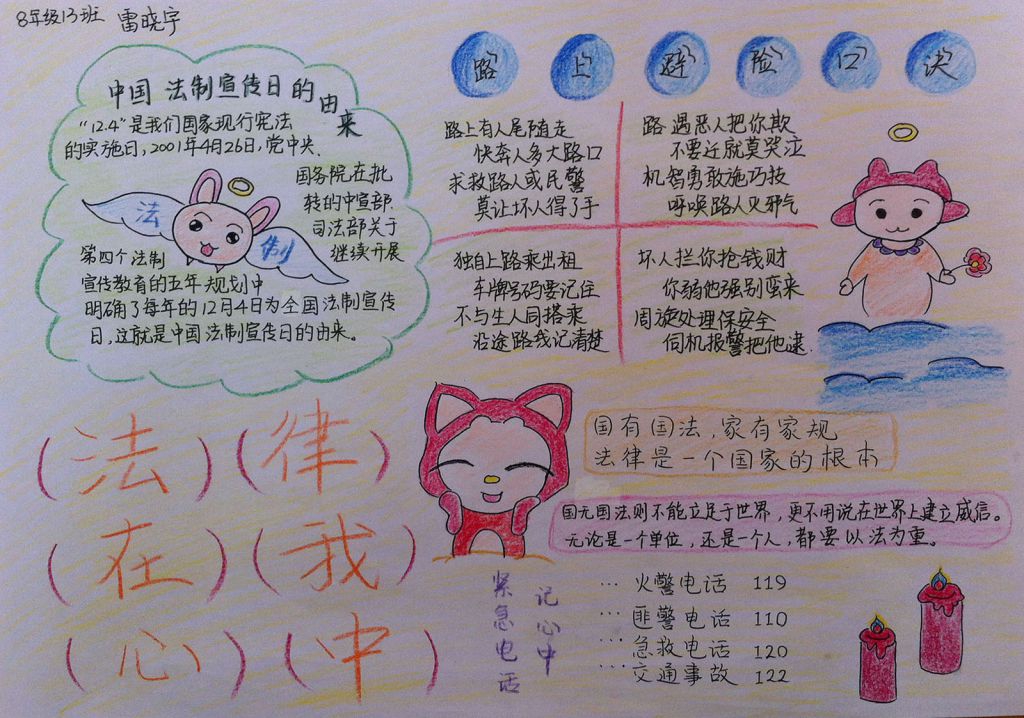 8年级13班 雷晓宇
中国法制宣传日的由来
"12.4"是我们国家现行宪法
的实施日,2001年4月26日,党中央、
国务院在批
转的中宣部、
司法部关于
继续开展
法制
第四个法制
宣传教育的五年规划中
明确了每年的12月4日为全国法制宣传
日,这就是中国法制宣传日的由来。
路上避险口诀
路上有人尾随走
快奔人多大路口
求救路人或民警
莫让坏人得了手
路遇恶人把你欺
不要迁就莫哭泣
机智勇敢施巧技
呼唤路人灭邪气
独自上路乘出租
车牌号码要记住
不与生人同搭乘
沿途路线记清楚
坏人拦你抢钱财
你弱他强别蛮来
周旋处理保安全
伺机报警把他逮.
(法)(律)
(在)(我)
(心)(中)
国有国法,家有家规
法律是一个国家的根本
国无国法则不能立足于世界,更不用说在世界上建立威信。
无论是一个单位,还是一个人,都要以法为重。
紧急电话
记心中
… 火警电话 119
… 匪警电话 110
… 急救电话 120
… 交通事故 122